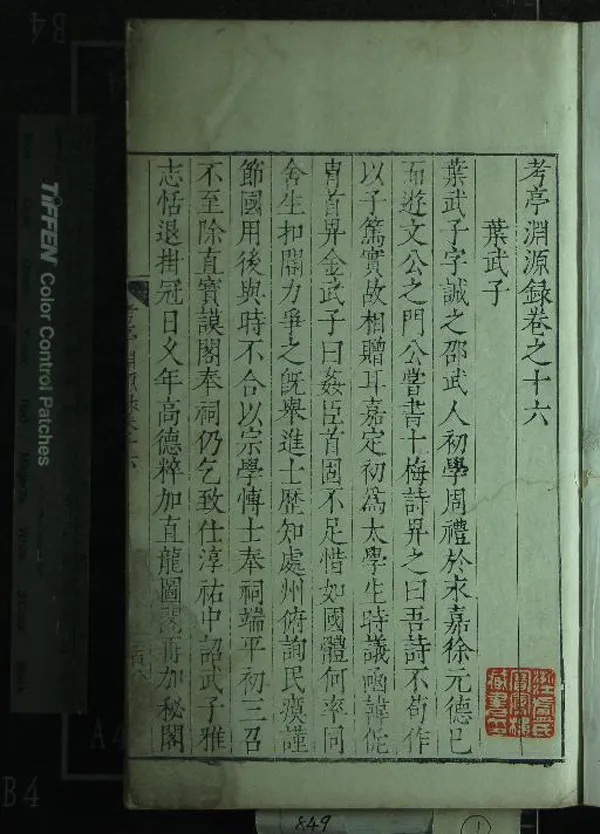 考亭淵源録卷之十六
葉武子
葉武子字誠之邵武人初學周禮於永嘉徐元德已
而遊文公之門公嘗書十梅詩畀之曰吾詩不苟作
以子篤實故相贈耳嘉定初爲太學生時議函韓侂
胄首畀金武子曰姦臣首固不足惜如國體何率同
舍生扣閽力爭之既舉進士歷知處州俯詢民瘼謹
節國用後與時不合以宗學博士奉祠端平初三召
不至除直寶謨閣奉祠仍乞致仕淳祐中詔武子雅
志恬退掛冠日久年高德粹加直龍圖閣再加秘閣
TIFFEN Color Control Patches
B4
A4
B4
849
1